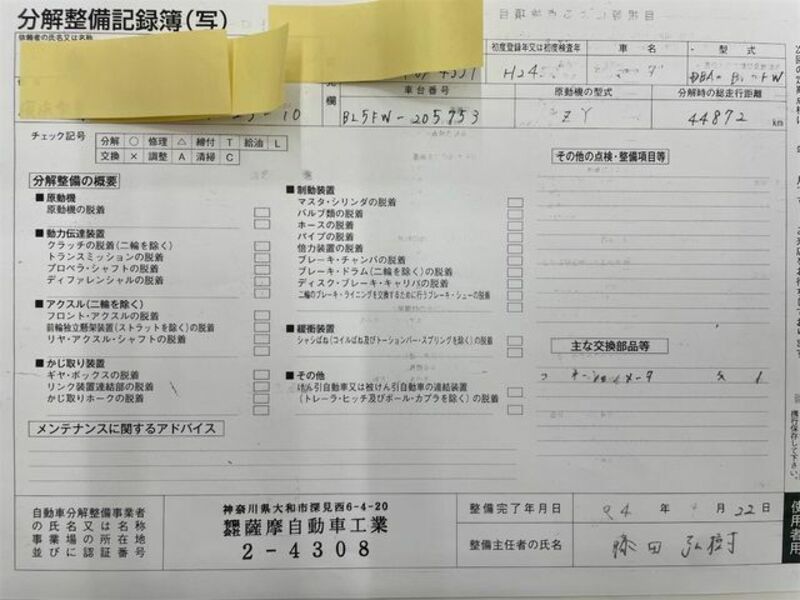 分解整備記録簿(写)
依頼者の氏名又は名称
初度登録年又は初度検査年
車名
型式
H24.
車台番号
原動機の型式
分解時の総走行距離
BL5FW-205753
ZY
44872 km
チェック記号
分解 ○ 修理 △ 締付 T 給油 L
交換 × 調整 A 清掃 C
その他の点検・整備項目等
分解整備の概要
■原動機
原動機の脱着
■動力伝達装置
クラッチの脱着(二輪を除く)
トランスミッションの脱着
プロペラ・シャフトの脱着
ディファレンシャルの脱着
■アクスル(二輪を除く)
フロント・アクスルの脱着
前輪独立懸架装置(ストラットを除く)の脱着
リヤ・アクスル・シャフトの脱着
■かじ取り装置
ギヤ・ボックスの脱着
リンク装置連結部の脱着
かじ取りホークの脱着
■制動装置
マスタ・シリンダの脱着
バルブ類の脱着
ホースの脱着
パイプの脱着
倍力装置の脱着
ブレーキ・チャンバの脱着
ブレーキ・ドラム(二輪を除く)の脱着
ディスク・ブレーキ・キャリパの脱着
二輪のブレーキ・ライニングを交換するために行うブレーキ・シューの脱着
■緩衝装置
シャシばね(コイルばね及びトーションバー・スプリングを除く)の脱着
■その他
けん引自動車又は被けん引自動車の連結装置
(トレーラ・ヒッチ及びボール・カプラを除く)の脱着
主な交換部品等
メンテナンスに関するアドバイス
自動車分解整備事業者
の氏名又は名称
事業場の所在地
並びに認証番号
神奈川県大和市深見西6-4-20
株式会社 薩摩自動車工業
2-4308
整備完了年月日
R4 年 月 22 日
整備主任者の氏名
藤田 弘樹
使用者用
携行保存して下さい。